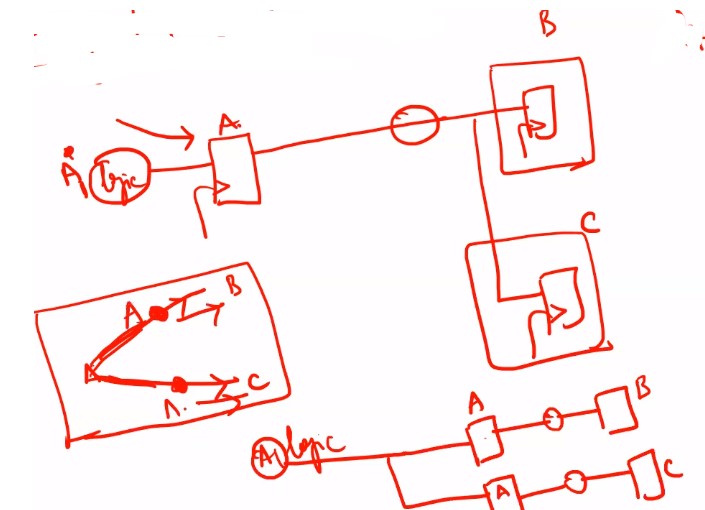 B
A.
A1 logic
C
A B
A C
A1 logic A B
A C